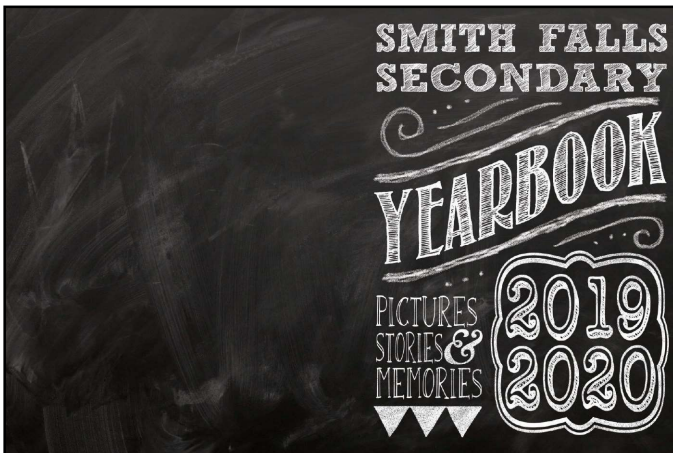 SMITH FALLS
SECONDARY
YEARBOOK
PICTURES
STORIES &
MEMORIES
2019
2020